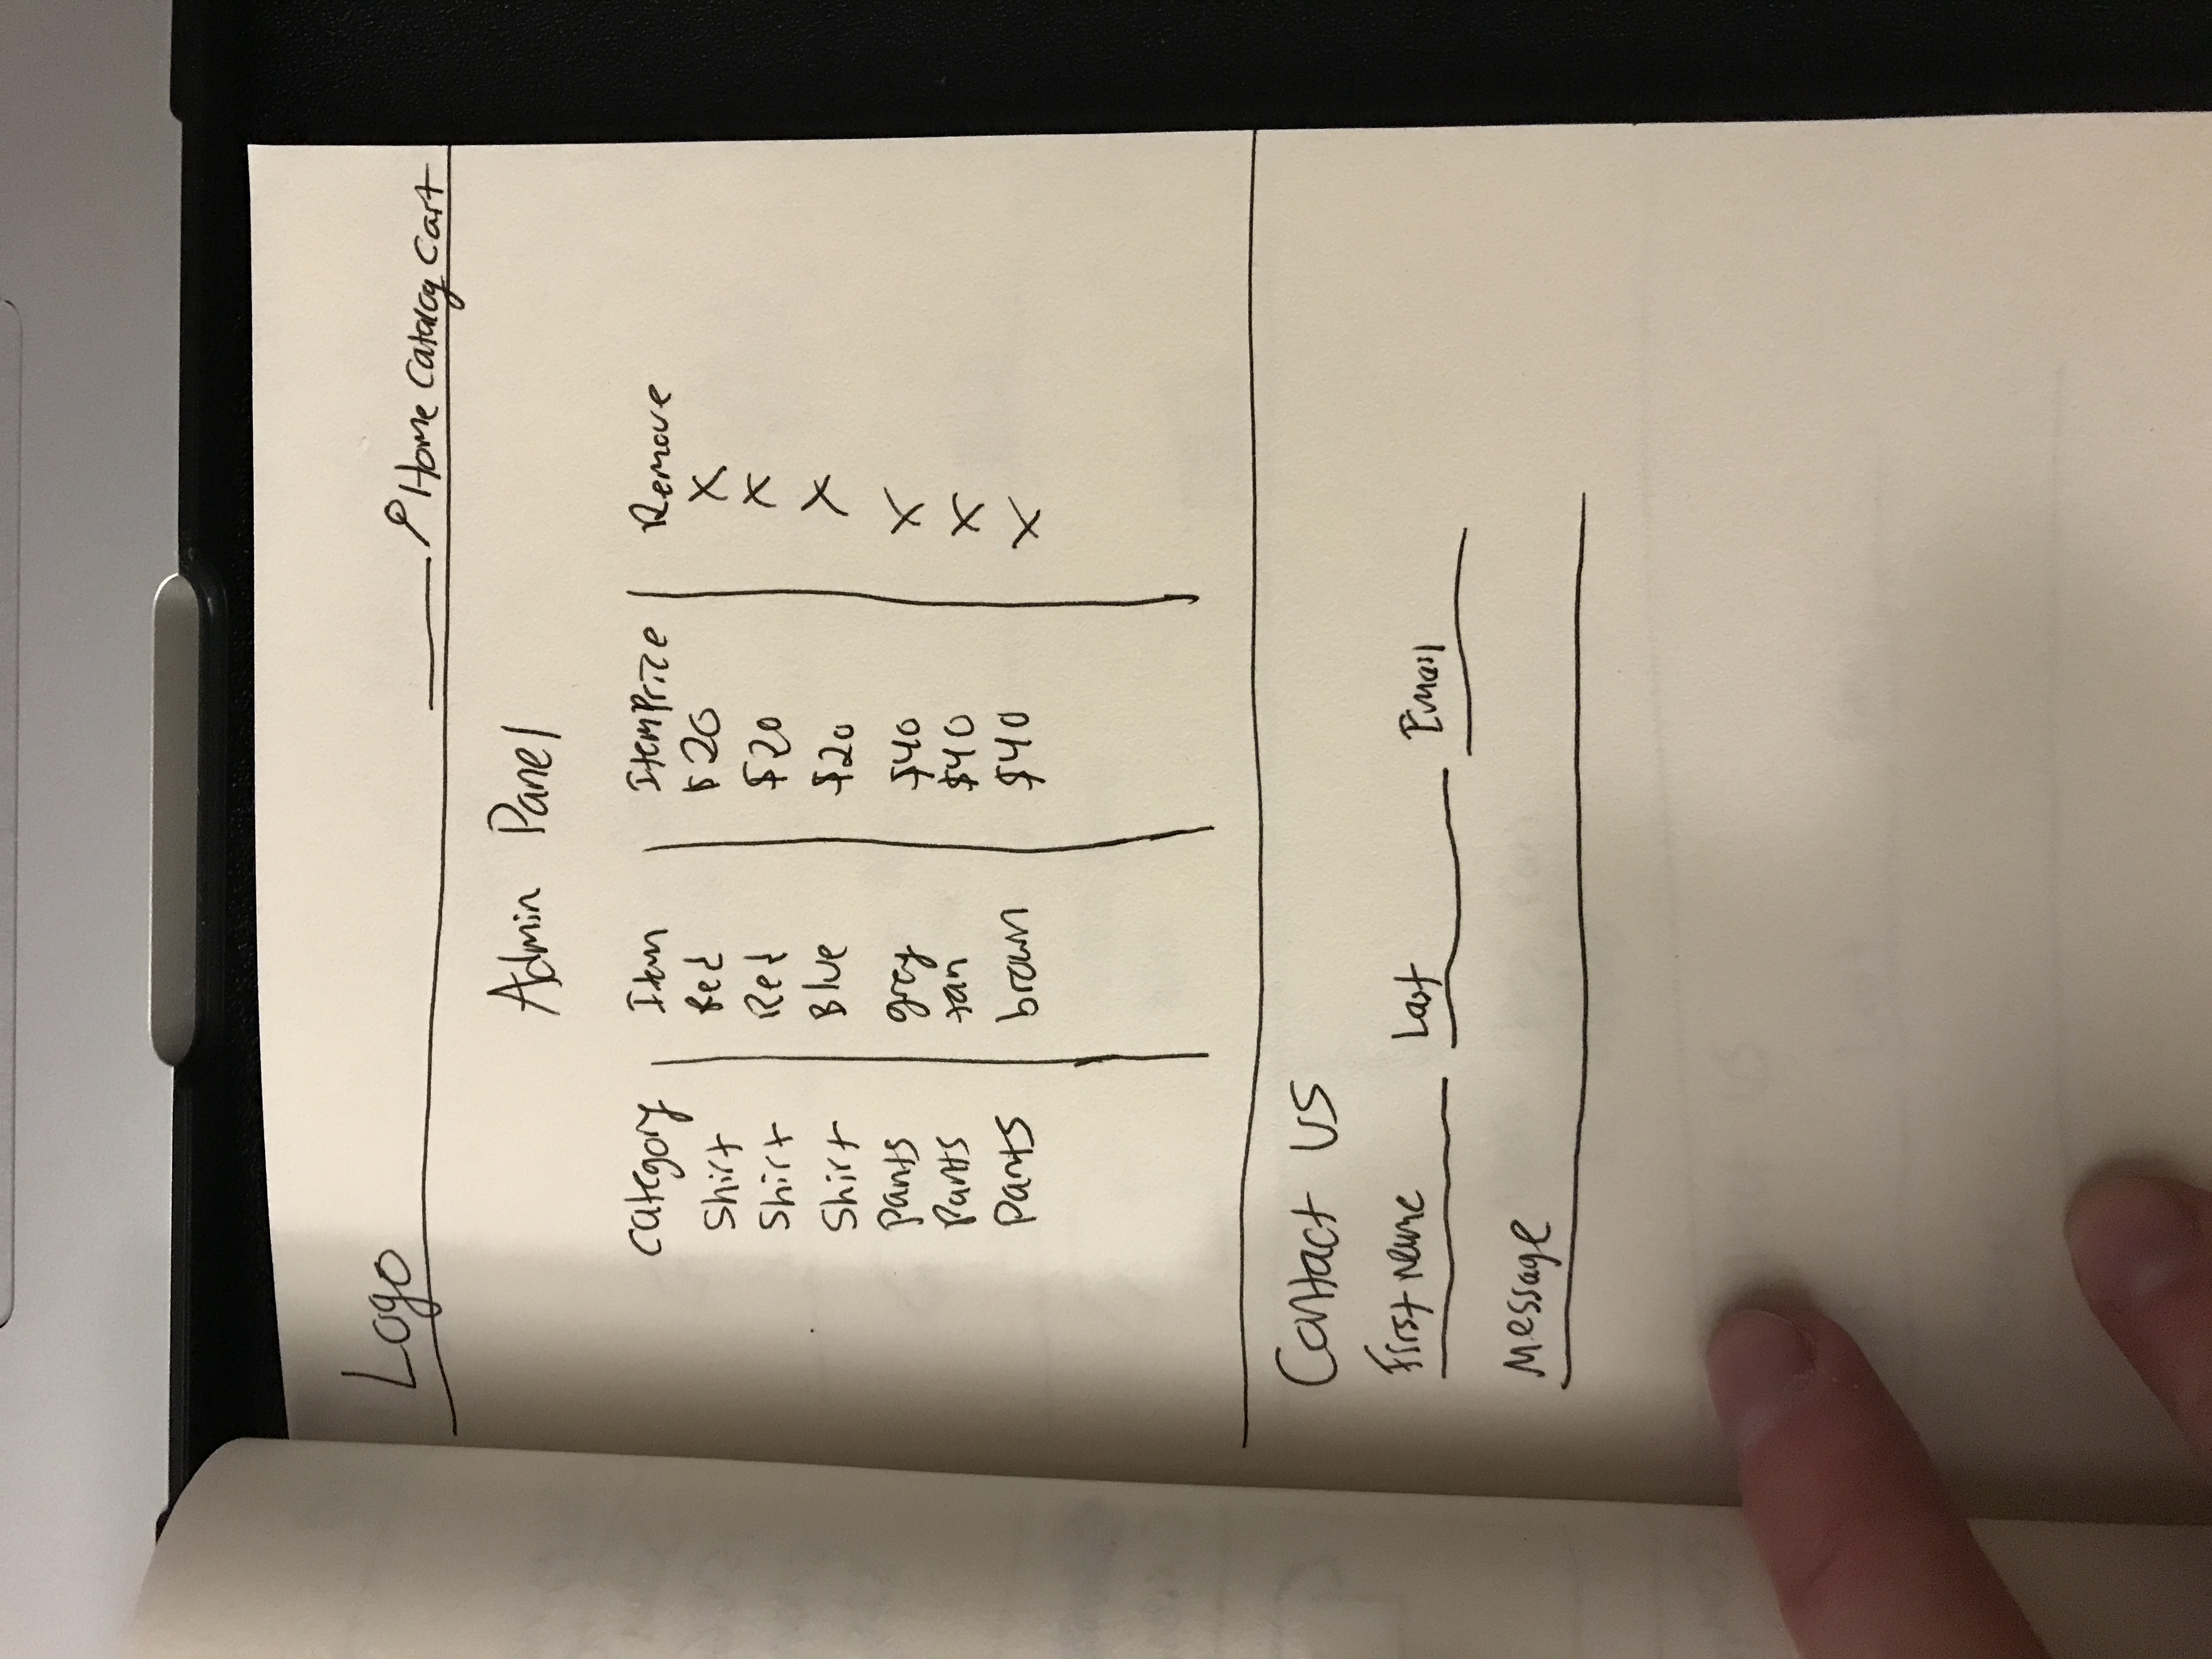 Logo
Home Catalog Cart
Admin Panel
Category Item Item Price Remove
Shirt Red $20 X
Shirt Red $20 X
Shirt Blue $20 X
Pants grey $40 X
Pants tan $40 X
Pants brown $40 X
Contact US
First Name Last Email
Message